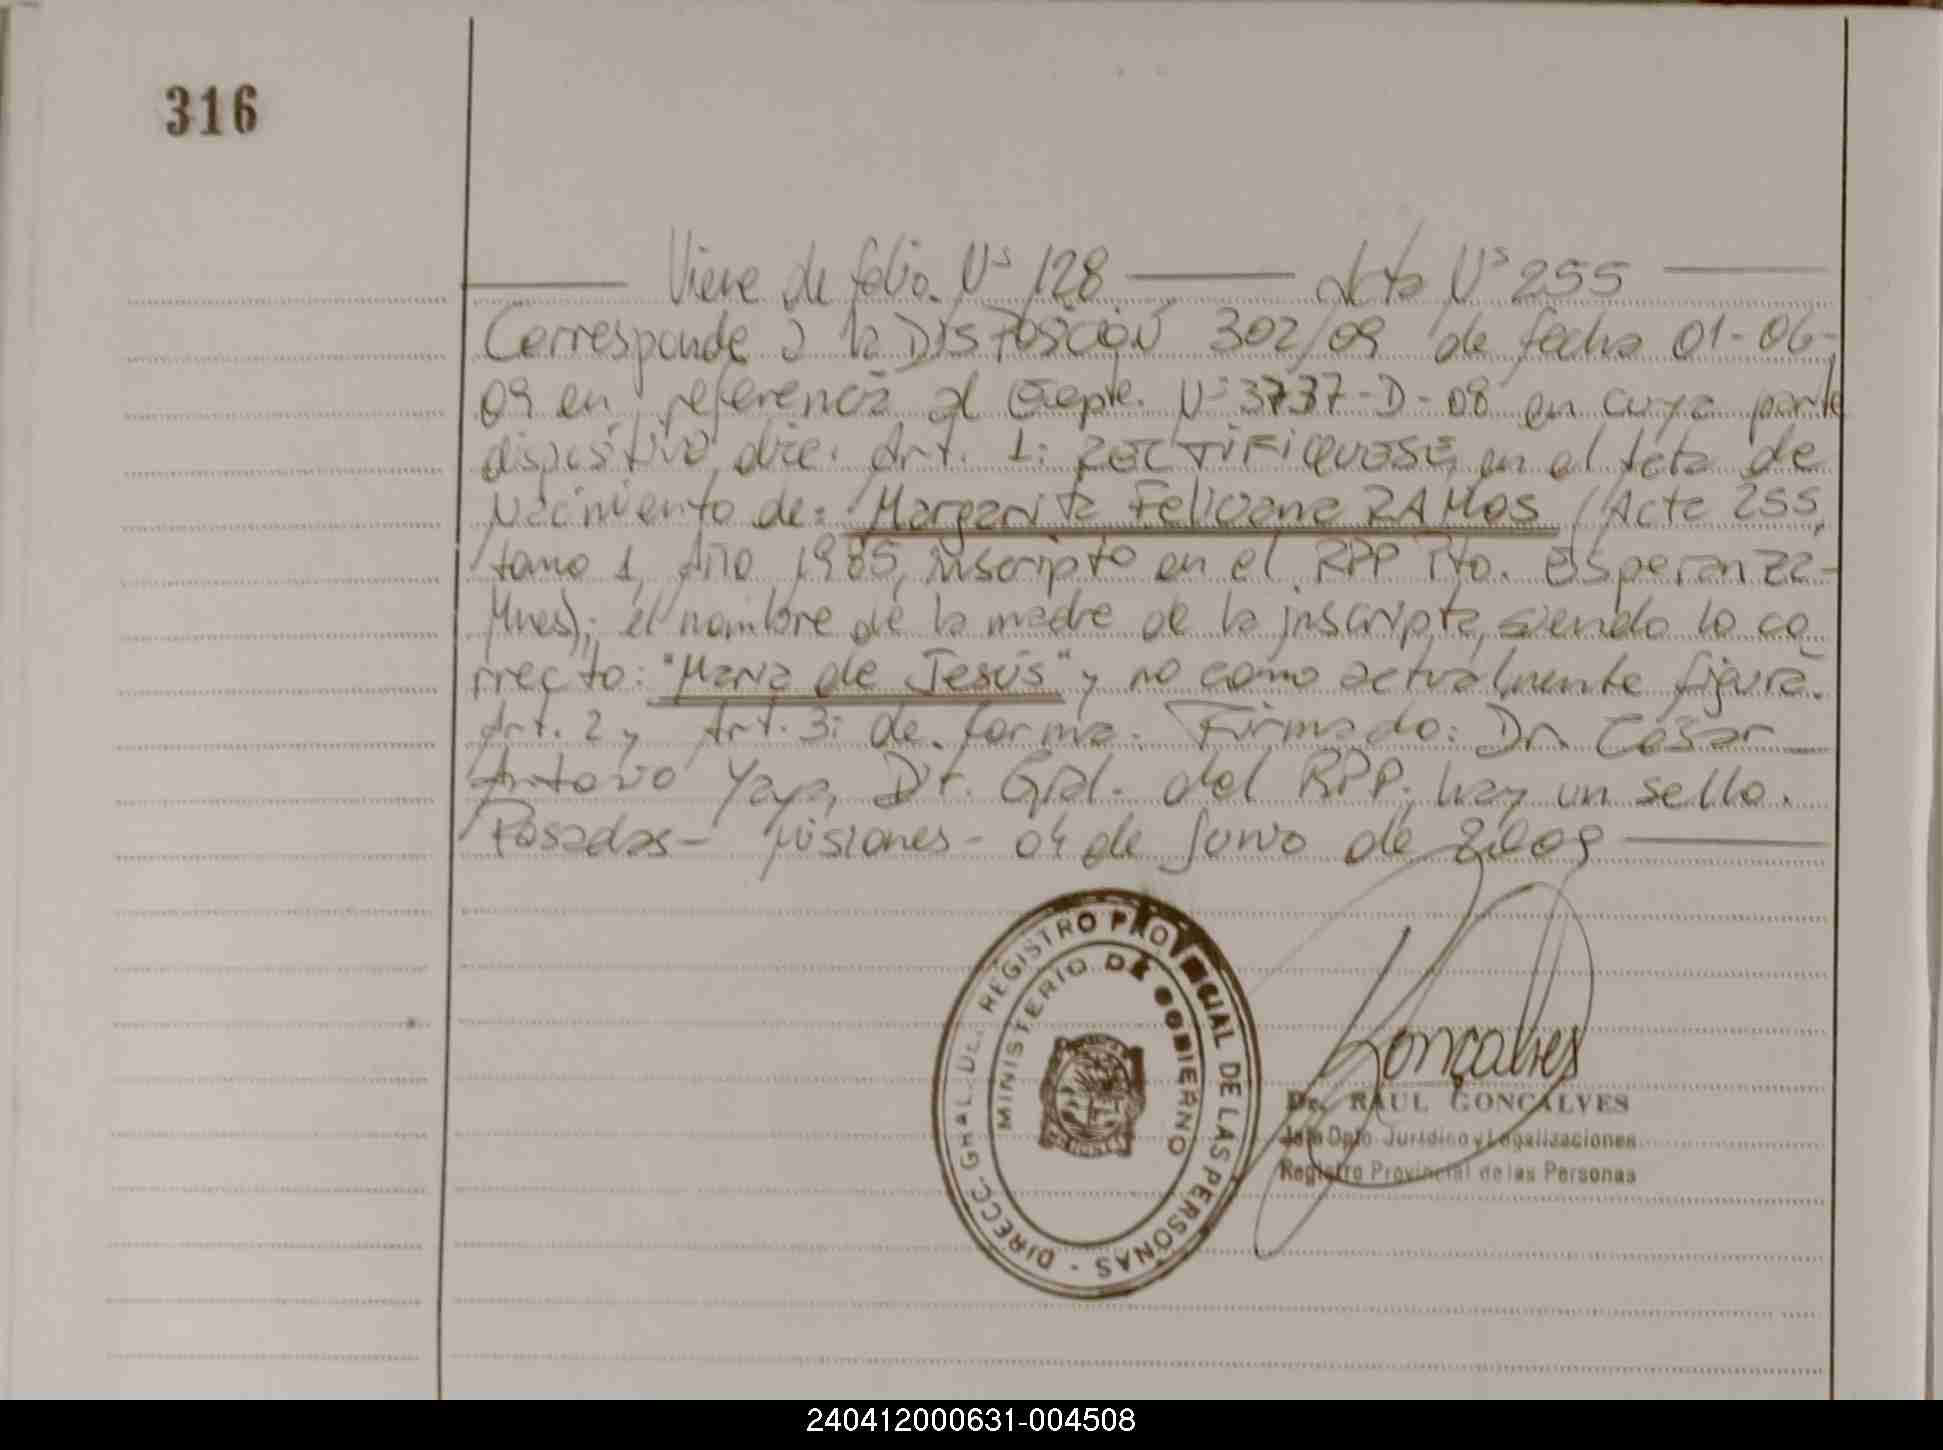 316
Viene de folio Nº 128 — Acta Nº 255
Corresponde a la DISPOSICIÓN 302/09 de fecha 01-06-
09 en referencia al Expte. Nº 3737-D-08 en cuya parte
dispositiva dice. Art. 1: RECTIFIQUESE, en el Acta de
Nacimiento de: Margarita Feliciana RAMOS (Acta 255,
tomo 1, Año 1985, inscripto en el RPP Pto. Esperanza-
Mnes); el nombre de la madre de la inscripta, siendo lo co
rrecto: "Maria de Jesús" y no como actualmente figura.
Art. 2 y Art. 3: de forma. Firmado: Dr. César
Antonio Yaya, Dr. Gral. del RPP, hay un sello.
Posadas- Misiones- 04 de Junio de 2009
DIRECC. GRAL. DEL REGISTRO PROVINCIAL DE LAS PERSONAS -
MINISTERIO DE GOBIERNO
Gonçalves
Dr. RAUL GONCALVES
Jefe Dpto Jurídico y Legalizaciones
Registro Provincial de las Personas
240412000631-004508